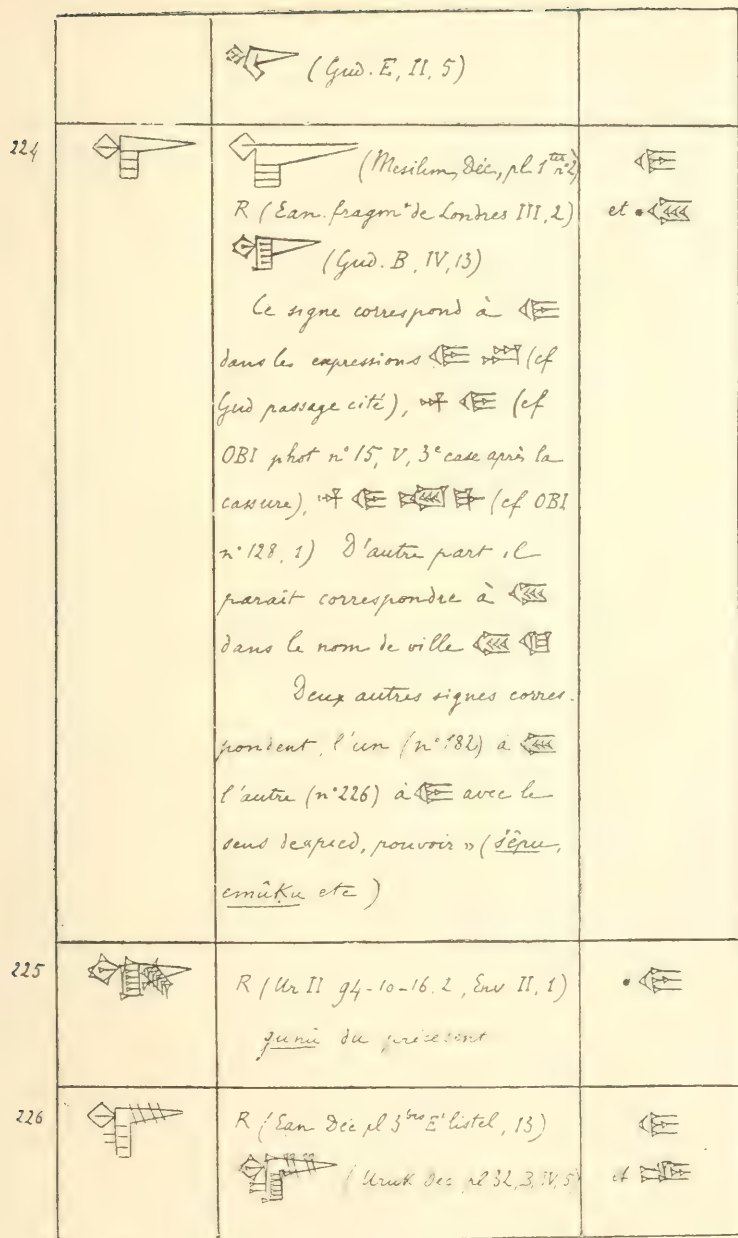 (Gud. E, II, 5)
224
(Mesilim, Déc, pl. 1 ter n° 2)
R (Ean. fragmt de Londres III, 2) et •
(Gud. B, IV, 13)
Ce signe correspond à
dans les expressions (cf
Gud passage cité), (cf
OBI phot n° 15, V, 3e case après la
cassure), (cf OBI
n° 128, 1) D'autre part, il
parait correspondre à
dans le nom de ville
Deux autres signes corres-
pondent, l'un (n° 182) à
l'autre (n° 226) à avec le
sens de «pied, pouvoir» (šêpu,
emûku etc)
225
R (Ur II 94-10-16. 2, Env II, 1) •
gunû du précédent
226
R (Ean Déc pl 3 bis E' listel, 13)
(Uruk Déc pl 32, 3, IV, 5) et